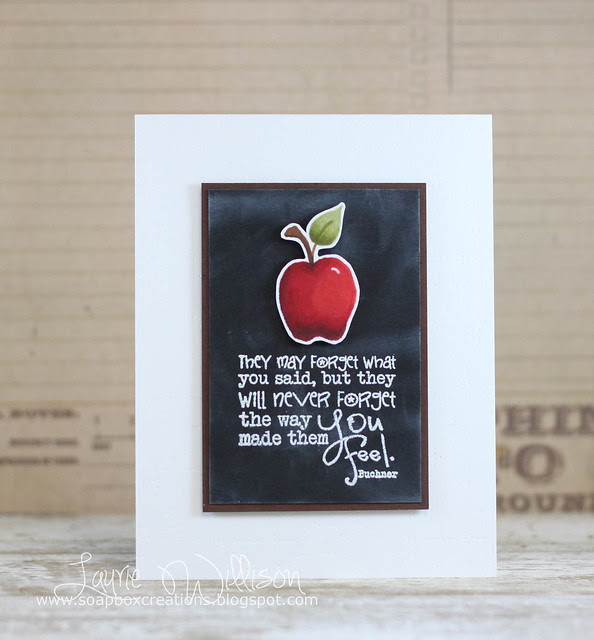 They may forget what
you said, but they
will never forget
the way you
made them feel.
Buchner
Layrie Willison
www.soapboxcreations.blogspot.com